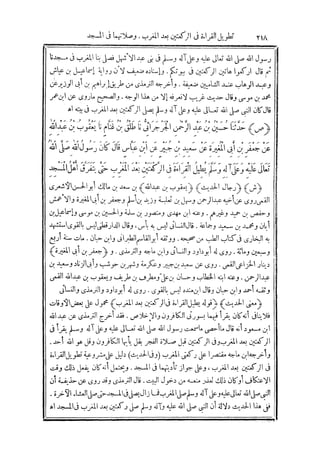 ٢١٨ تطويل القراءة فى الركعتين بعد المغرب . وصلاتهما فى المسجد
رسول الله صلى الله تعالى عليه وعلى آله وسلم فى بنى عبد الأشهل فصلى بنا المغرب فى مسجدنا
ثم قال اركعوا هاتين الركعتين فى بيوتكم . وإسناده ضعيف لأن رواية إسماعيل بن عياش
وعبد الوهاب عند الشاميين ضعيفة . وأخرجه الترمذى من طريق إبراهيم بن أبى الوزير عن
محمد بن موسى وقال حديث غريب لا نعرفه إلا من هذا الوجه . والصحيح ماروى عن ابن عمر
قال كان النبى صلى الله تعالى عليه وعلى آله وسلم يصلى الركعتين بعد المغرب فى بيته اه
﴿ص﴾ حَدَّثَنَا حُسَيْنُ بْنُ عَبْدِ الرَّحْمَنِ الْجَرْجَرَائِىُّ نَا طَلْقُ بْنُ غَنَّامٍ نَا يَعْقُوبُ بْنُ عَبْدِ اللهِ
عَنْ جَعْفَرِ بْنِ أَبِى الْمُغِيرَةِ عَنْ سَعِيدِ بْنِ جُبَيْرٍ عَنِ ابْنِ عَبَّاسٍ قَالَ كَانَ رَسُولُ اللهِ صَلَّى اللهُ
تَعَالَى عَلَيْهِ وَعَلَى آلِهِ وَسَلَّمَ يُطِيلُ الْقِرَاءَةَ فِى الرَّكْعَتَيْنِ بَعْدَ الْمَغْرِبِ حَتَّى يَتَفَرَّقَ أَهْلُ الْمَسْجِدِ
﴿ش﴾ ﴿رجال الحديث﴾ ﴿يعقوب بن عبد الله﴾ بن سعد بن مالك أبو الحسن الأشعرى
القمى روى عن أخيه عبد الرحمن وسهل بن ثعلبة وزيد بن أسلم وجعفر بن أبى المغيرة والأعمش
وحفص بن حميد وغيرهم . وعنه ابن مهدى ومنصور بن سلمة والحسن بن موسى وإسماعيل بن
أبان ومحمد بن سعيد وجماعة . قال النسائى ليس به بأس . وقال الدارقطنى ليس بالقوى استشهد
به البخارى فى كتاب الطب من صحيحه . ووثقه أبو القاسم الطبرانى وابن حبان . مات سنة أربع
وسبعين ومائة . روى له أبوداود والنسائى وابن ماجه والترمذى . و ﴿جعفر بن أبى المغيرة﴾
دينار الخزاعى القمى . روى عن سعيد بن جبير وعكرمة وشهر بن حوشب وأبى الزناد وسعيد بن
عبد الرحمن . وعنه ابنه الخطاب وحسان بن على ومطرف بن طريف ويعقوب بن عبد الله القمى
وثقه أحمد وابن حبان وقال ابن منده ليس بالقوى . روى له أبوداود والترمذى والنسائى
﴿معنى الحديث﴾ ﴿قوله يطيل القراءة فى الركعتين بعد المغرب﴾ محمول على بعض الأوقات
فلا ينافى أنه كان يقرأ فيهما بسورتى الكافرون والإخلاص . فقد أخرج الترمذى عن عبد الله
ابن مسعود أنه قال ما أحصى ما سمعت رسول الله صلى الله تعالى عليه وعلى آله وسلم يقرأ فى
الركعتين بعد المغرب وفى الركعتين قبل صلاة الفجر بقل يأيها الكافرون وقل هو الله أحد .
وأخرجه ابن ماجه مقتصرا على ركعتى المغرب ﴿وفى الحديث﴾ دليل على مشروعية تطويل القراءة
فى الركعتين بعد المغرب . وعلى جواز تأديتهما فى المسجد . ويحتمل أنه كان يفعل ذلك وقت
الاعتكاف أو كان ذلك لعذر منعه من دخول البيت . قال الترمذى وقد روى عن حذيفة أن
النبى صلى الله تعالى عليه وعلى آله وسلم صلى المغرب فما زال يصلى فى المسجد حتى صلى العشاء الآخرة .
ففى هذا الحديث دلالة أن النبى صلى الله عليه وآله وسلم صلى ركعتين بعد المغرب فى المسجد اه